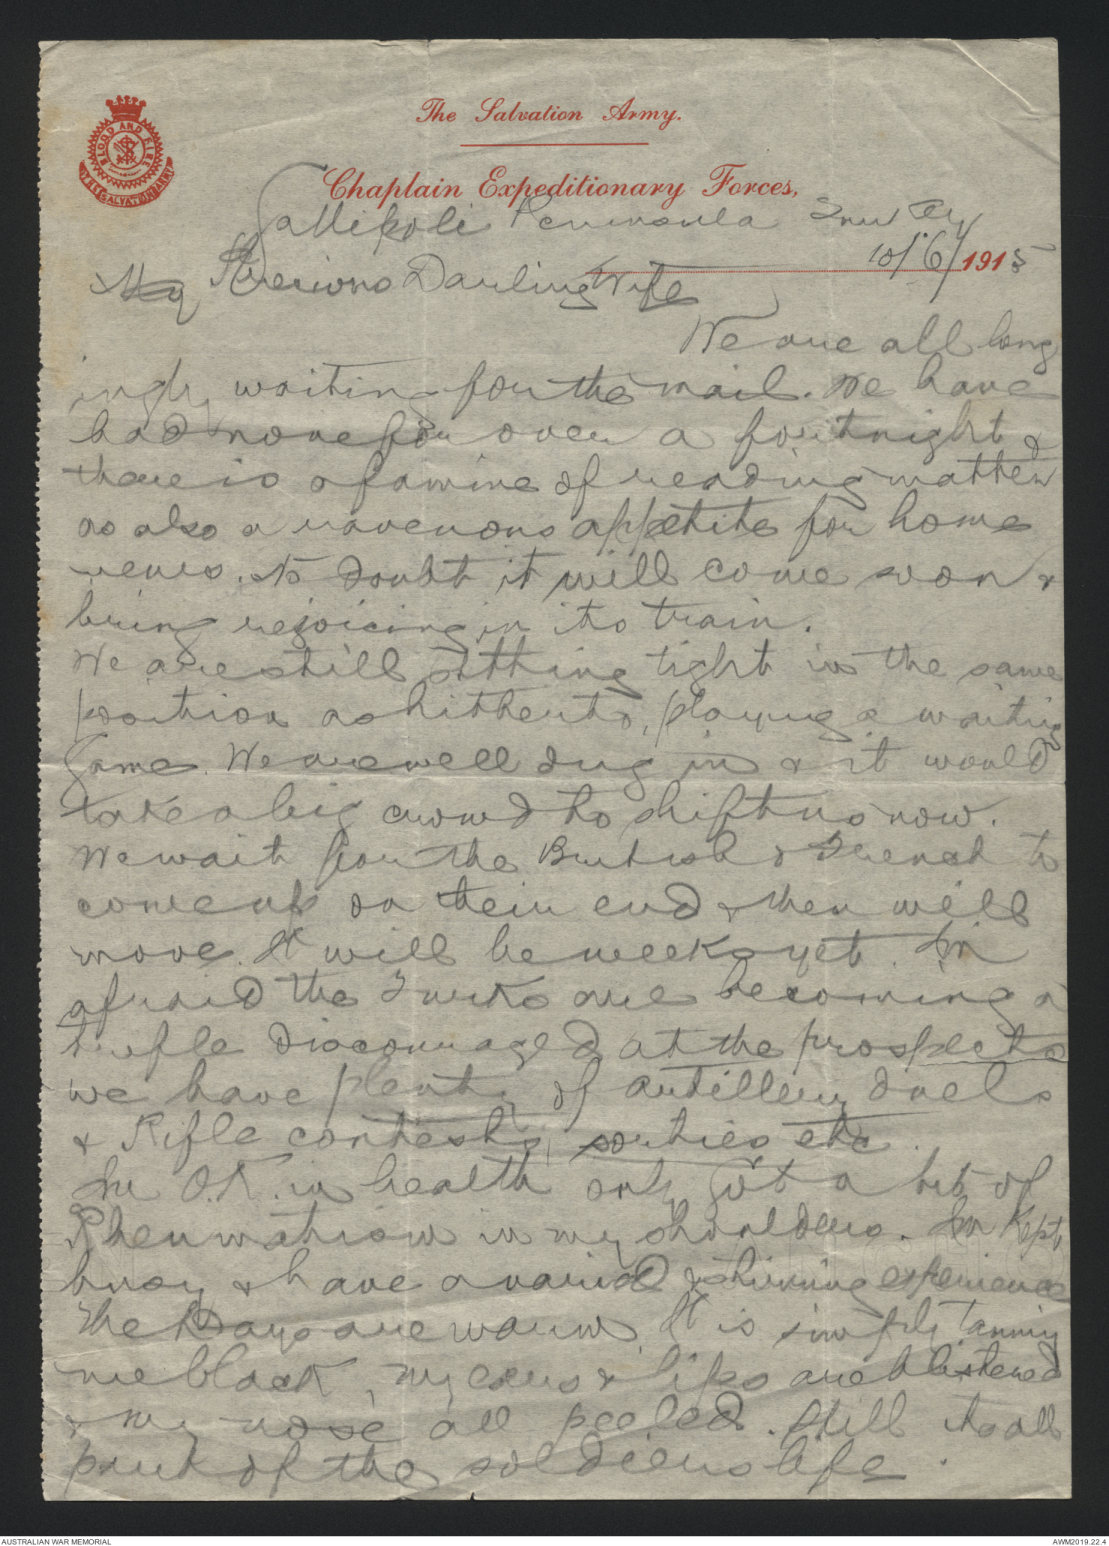 BLOOD AND FIRE
THE SALVATION ARMY
The Salvation Army.
Chaplain Expeditionary Forces,
Gallipoli Peninsula
10/6/1915
My Precious Darling Wife
We are all long
ingly waiting for the mail. We have
had none for over a fourtnight &
there is a famine of reading matter
as also a ravenous appetite for home
news. No doubt it will come soon &
bring rejoicing in its train.
We are still sitting tight in the same
position as hitherto, playing a waiting
Game. We are well dug in & it would
take a big crowd to shift us now.
We wait for the British & French to
come up on their end & then will
move. It will be weeks yet. Im
afraid the Turks are becoming a
trifle discouraged at the prospects
we have plenty of artillery duels
& Rifle contests, sorties etc.
Im O.K. in health only Got a bit of
Rheumatism in my shoulders. Im Kept
busy & have a varied & thrilling experience
The Days are warm. It is simply tanning
me black, my ears & lips are blistered
& my nose all peeled. Still its all
part of the soldiers life.
AUSTRALIAN WAR MEMORIAL
AWM2019.22.4